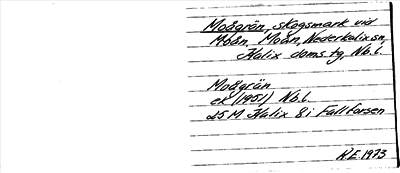 Moågrön, skogsmark vid
Moån, Moån, Nederkalix sn,
Kalix doms. tg, Nb.l.
Moågrän
ek (1951) Nb.l.
25 M Kalix 8i Fallforsen
K.E. 1973